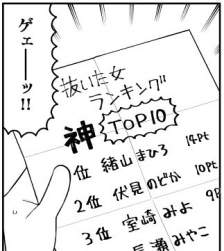 ゲェーーッ!!
抜いた女
ランキング
TOP10
神位 緒山まひろ 14Pt
2位 伏見のどか 10Pt
3位 室崎みよ 9P
長瀬みやこ